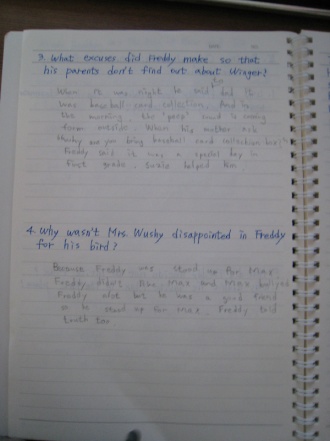 3. What excuses did Freddy make so that
his parents don't find out about Winger?
When it was night he said
was baseball card collection. And in
the morning, the "peep" sound is
from outside. When his mother ask
are you bring baseball card collection
Freddy said it was a special day in
first grade. helped him
4. Why wasn't Mrs. Wushy disappointed in Freddy
for his bird?
Because Freddy was stood up for Max.
Freddy didn't like Max and Max bullied
Freddy also but he was a good friend
so he stood up for Max. Freddy told
truth too.